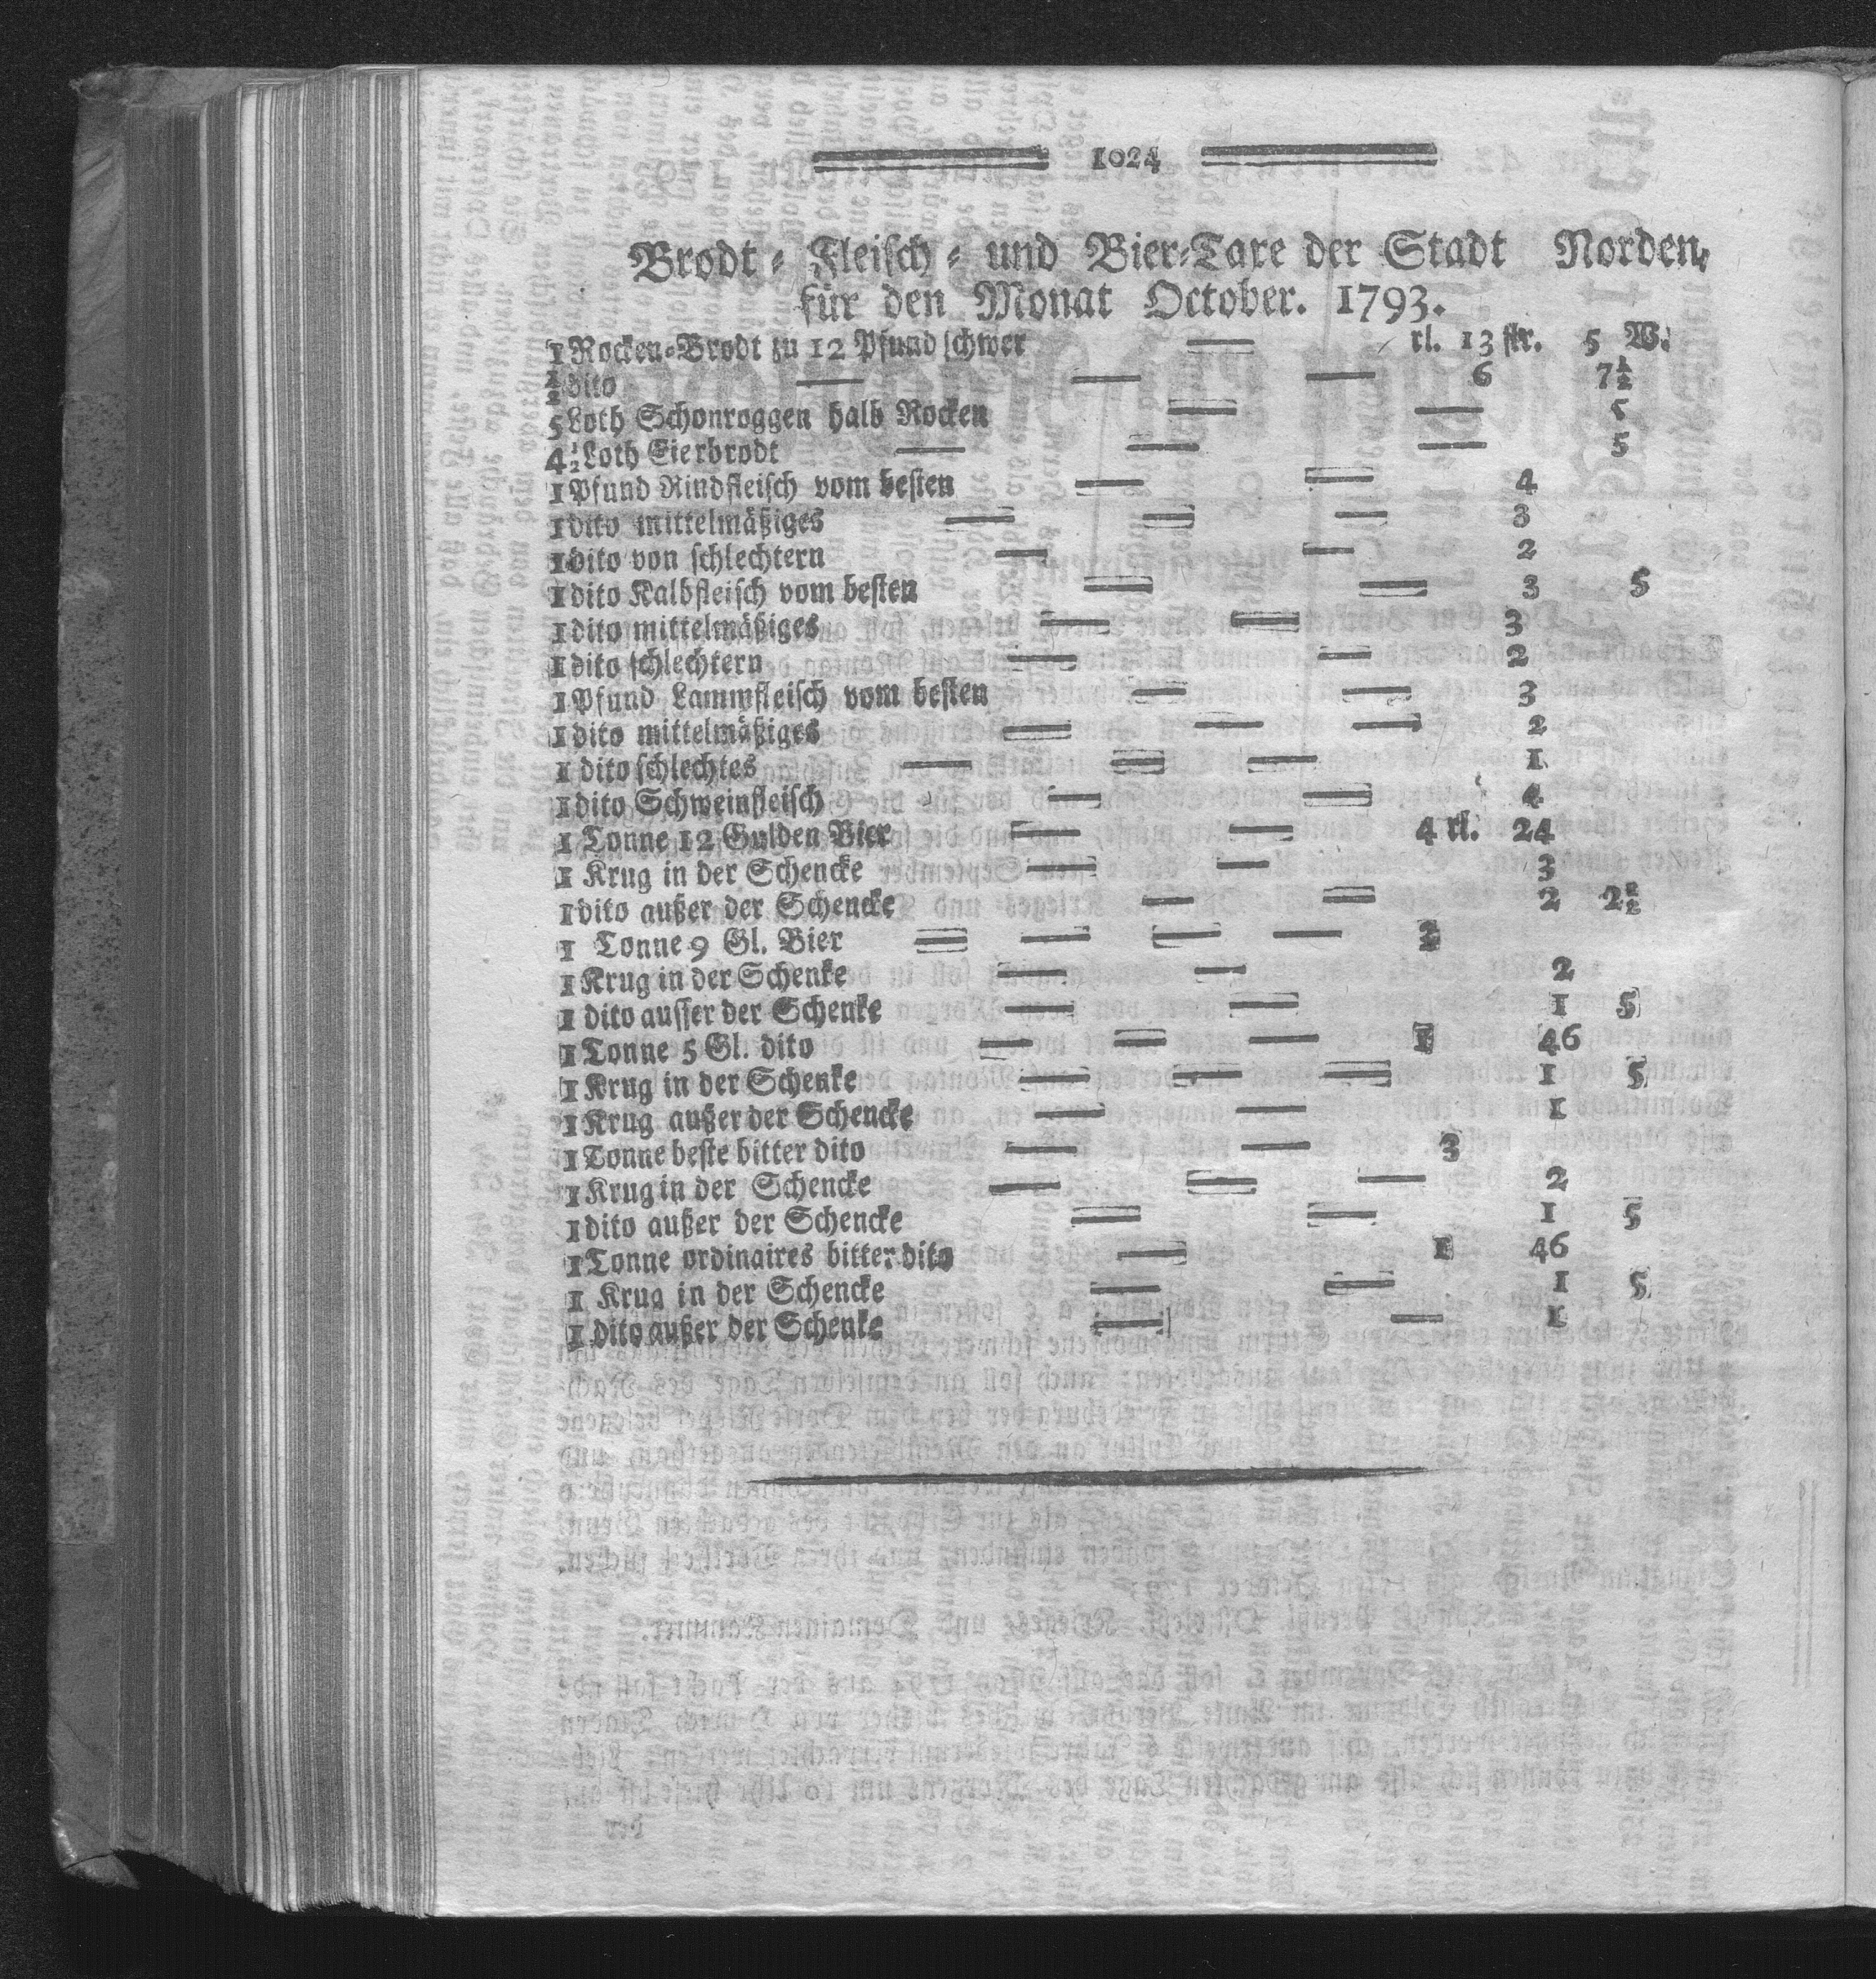 1024
Brodt- Fleisch- und Bier-Taxe der Stadt Norden,
für den Monat October. 1793.
1 Rocken-Brodt zu 12 Pfund schwer — rl. 13 str. 5 W.
½ dito — — — 6 7½
5 Loth Schonroggen halb Rocken — — 5
4½ Loth Eierbrodt — — — 5
1 Pfund Rindfleisch vom besten — — 4
1 dito mittelmäßiges — — — 3
1 dito von schlechtern — — 2
1 dito Kalbfleisch vom besten — — 3 5
1 dito mittelmäßiges — — 3
1 dito schlechtern — — 2
1 Pfund Lammfleisch vom besten — — 3
1 dito mittelmäßiges — — — 2
1 dito schlechtes — — — 1
1 dito Schweinfleisch — — 4
1 Tonne 12 Gulden Bier — — 4 rl. 24
1 Krug in der Schencke — — 3
1 dito außer der Schencke — — 2 2½
1 Tonne 9 Gl. Bier — — — — 2
1 Krug in der Schenke — — 2
1 dito ausser der Schenke — — 1 5
1 Tonne 5 Gl. dito — — — 1 46
1 Krug in der Schenke — — — 1 5
1 Krug außer der Schencke — — 1
1 Tonne beste bitter dito — — 3
1 Krug in der Schencke — — — 2
1 dito außer der Schencke — — 1 5
1 Tonne ordinaires bitter dito — 1 46
1 Krug in der Schencke — — 1 5
1 dito außer der Schenke — — 1